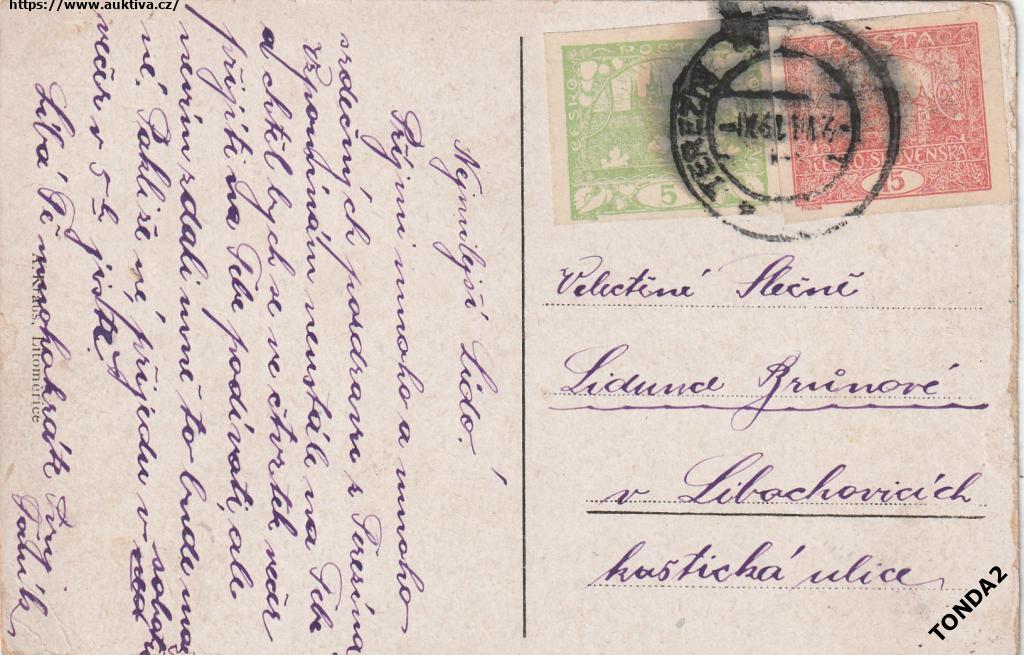 https://www.auktiva.cz/
Nejmilejší Lído!
Přijmi mnoho a mnoho
srdečných pozdravů z Terezína
Vzpomínám neustále na Tebe
a chtěl bych se ve čtvrtek večer
přijíti na Tebe podívati, ale
nevím zdali mně to bude
ně. Pakli že ne, přijedu v sobotu
večer v 5 h jistě.
Líbá Tě mnohokrát Tvůj
A. Kraus, Litoměřice
ČESKO
POŠTA
5
POŠTA
ČESKO-SLOVENSKÁ
15
TEREZÍN
Velectěná Slečně
Lidunce Brůnové
v Libochovicích
kostická ulice
TONDA2